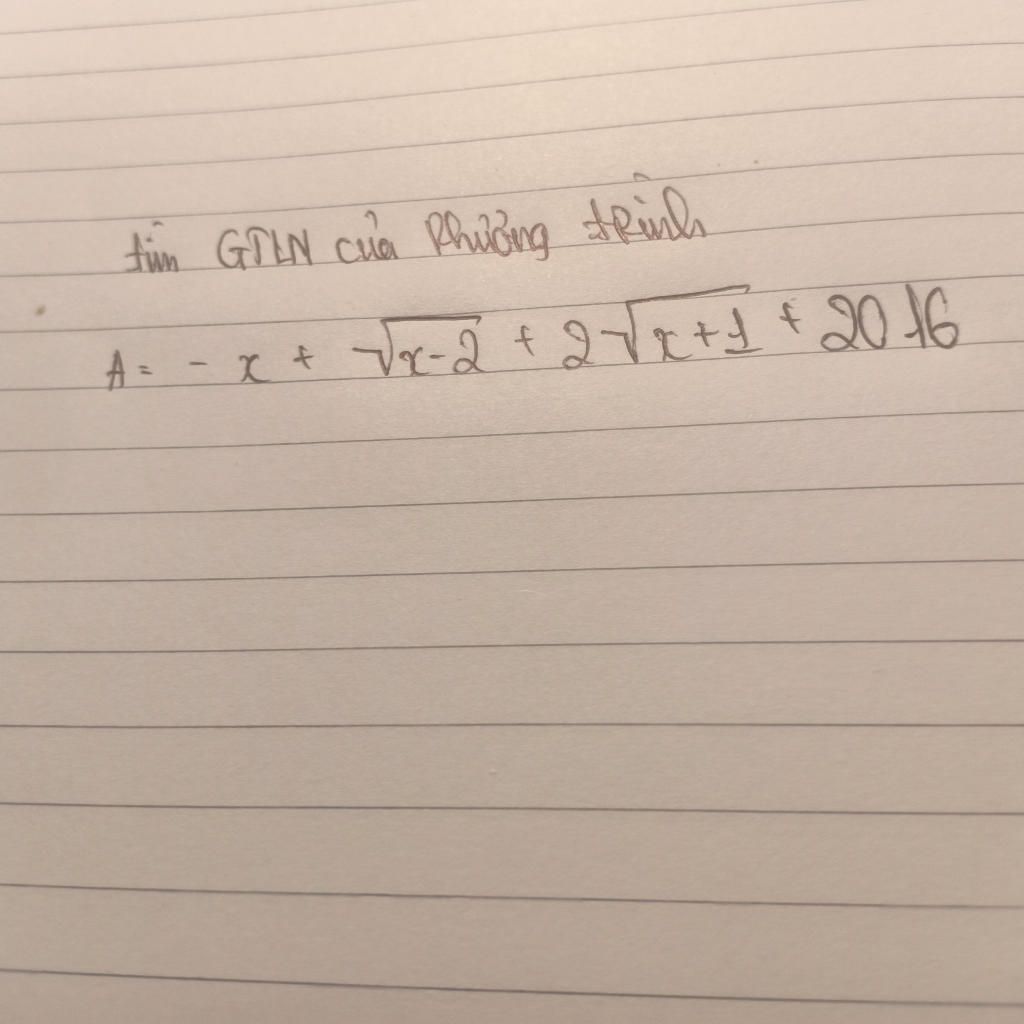 tìm GTLN của phương trình
A = - x + √x-2 + 2√x+1 + 2016